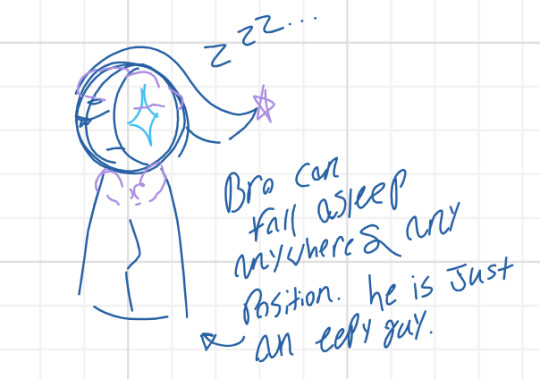 z zz...
Bro can
fall asleep
anywhere & any
Position. he is Just
an eepy guy.